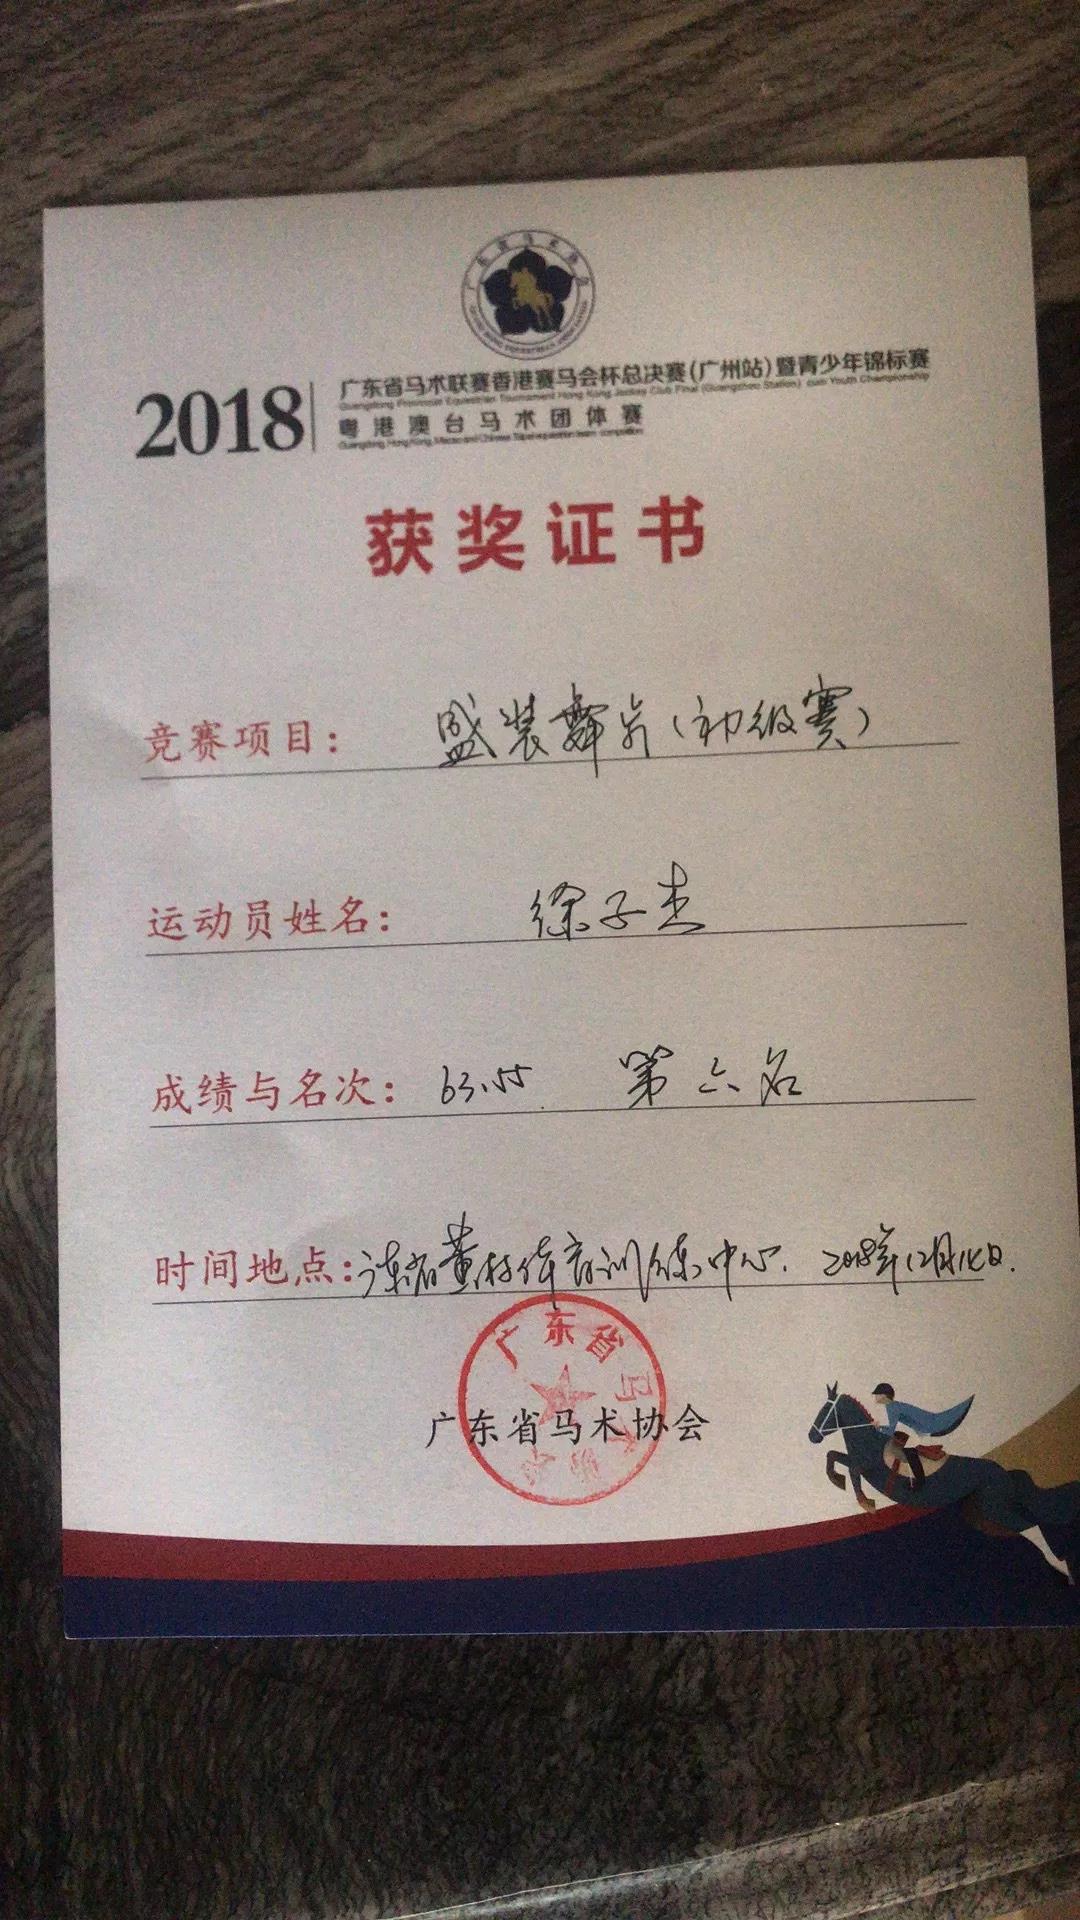 广东省马术协会
2018
广东省马术联赛香港赛马会杯总决赛(广州站)暨青少年锦标赛
Guangdong Provincial Equestrian Tournament Hong Kong Jockey Club Final (Guangzhou Station) cum Youth Championship
粤港澳台马术团体赛
获奖证书
竞赛项目: 盛装舞步(初级赛)
运动员姓名: 徐子杰
成绩与名次: 63.55 第六名
时间地点: 黄村体育训练中心. 2018年12月日.
广东省马术协会
广东省马术协会